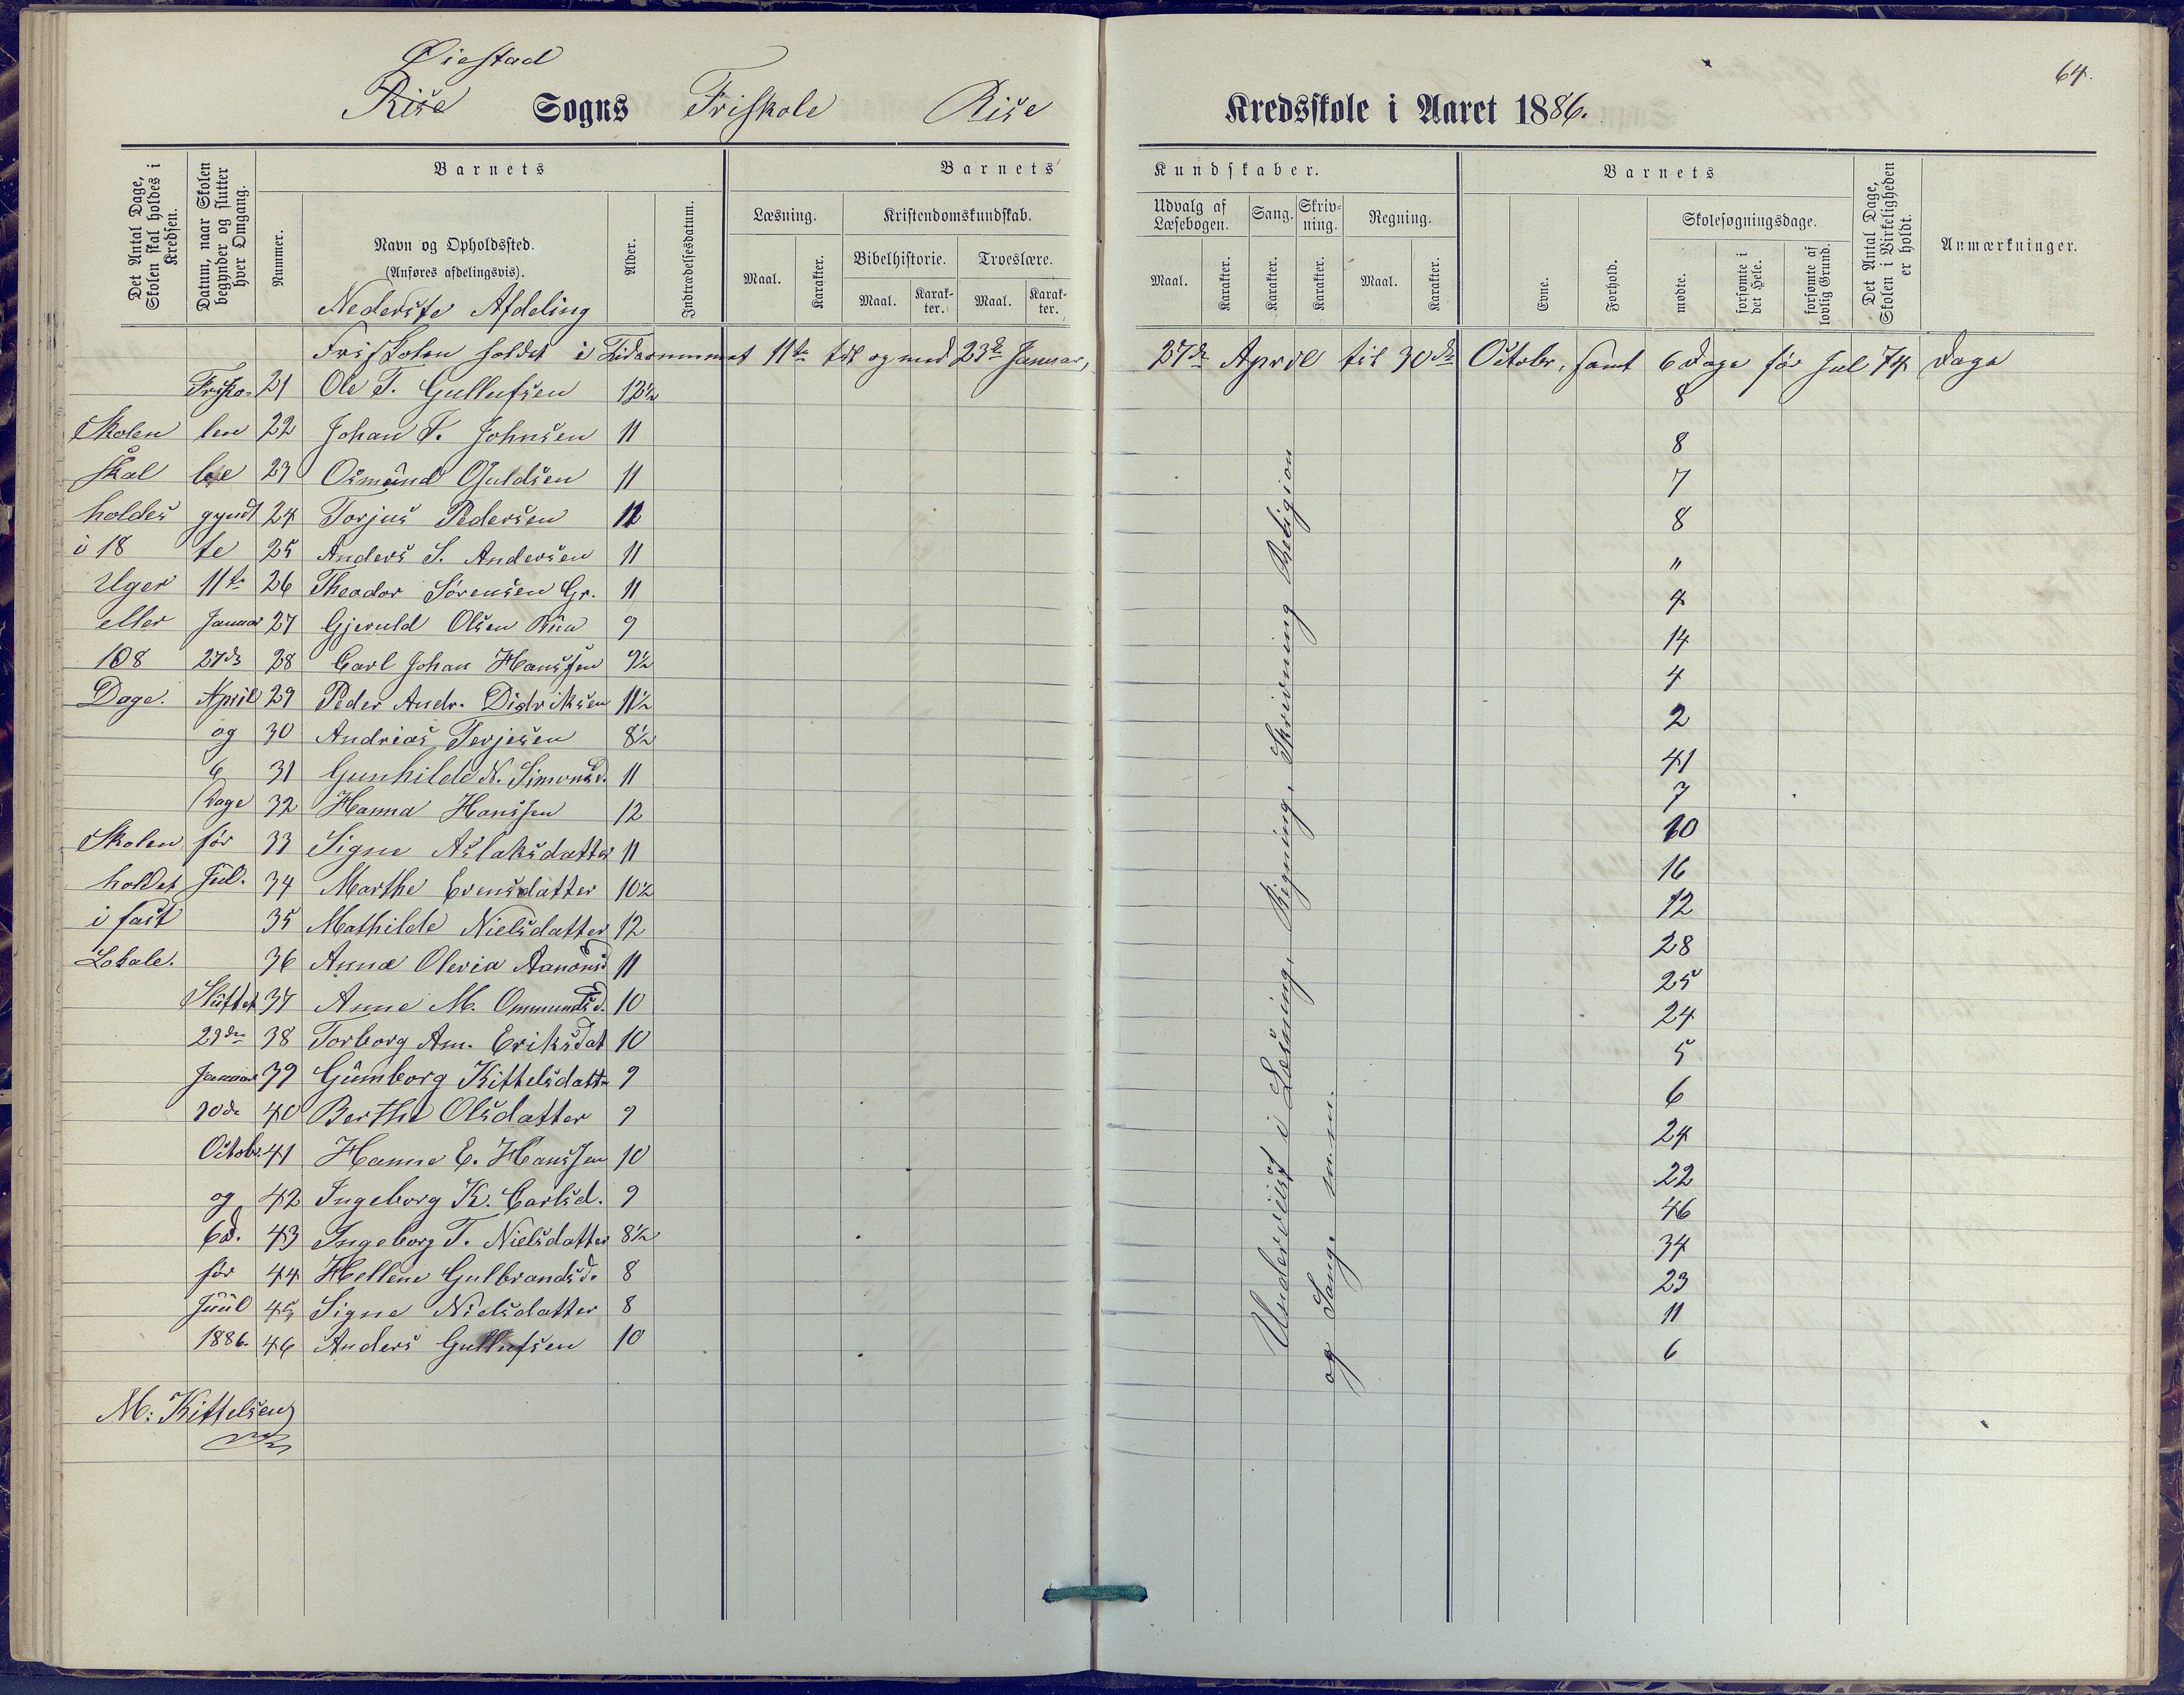 64.
Øiestad
Rise Sogns Friskole Rise Kredsskole i Aaret 1886.
Det Antal Dage, Skolen skal holdes i Kredsen.
Datum, naar Skolen begynder og slutter hver Omgang.
Barnets
Nummer.
Navn og Opholdssted.
(Anføres afdelingsvis).
Nederste Afdeling
Alder.
Indtrædelsesdatum.
Barnets Kundskaber.
Læsning.
Maal.
Karakter.
Kristendomskundskab.
Bibelhistorie.
Maal.
Karakter.
Troeslære.
Maal.
Karakter.
Udvalg af Læsebogen.
Maal.
Karakter.
Sang.
Karakter.
Skrivning.
Karakter.
Regning.
Maal.
Karakter.
Barnets
Evne.
Forhold.
Skolesøgningsdage.
mødte.
forsømte i det Hele.
forsømte af lovlig Grund.
Det Antal Dage, Skolen i Virkeligheden er holdt.
Anmærkninger.
Friskolen holdet i Tidsrummet 11te til og med 23de Januar, 27de April til 30de Octobr, samt 6 Dage før Jul 74 Dage
Frisko- 21 Ole T. Gullufsen 12½ 8
Skolen len 22 Johan T. Johnsen 11 8
skal be 23 Osmund Guldsen 11 7
holdes gyndt 24 Torjus Pedersen 12 8
i 18 te 25 Anders S. Andersen 11 "
Uger 11te 26 Theodor Sørensen Gr. 11 4
eller Januar 27 Gjeruld Olsen 9 14
108 27de 28 Carl Johan Hanssen 9½ 4
Dage. April 29 Peder Andr. Didriksen 11½ 2
og 30 Andreas Terjesen 8½ 41
6 31 Gunhilde N. Simonsd. 11 7
Dage 32 Hanna Hanssen 12 10
Skolen før 33 Signe Aslaksdatter 11 16
holdet Jul. 34 Marthe Evensdatter 10½ 12
i fast 35 Mathilde Nielsdatter 12 28
Lokale. 36 Anna Olevia Aanonsd 11 25
Sluttet 37 Anne M. Ommundsd. 10 24
23de 38 Torborg Am. Eriksdat 10 5
Januar 39 Gunborg Kittelsdatt. 9 6
30de 40 Berthe Olsdatter 9 24
Octobr. 41 Hanne E. Hanssen 10 22
og 42 Ingeborg K. Carlsd. 9 46
6 d. 43 Ingeborg T. Nielsdatter 8½ 34
før 44 Hellene Gulbrandsd. 8 23
Juul 45 Signe Nielsdatter 8 11
1886. 46 Anders Gullufsen 10 6
M. Kittelsen
Underviist i Læsning, Regning, Skrivning Religion
og Sang. m.m.